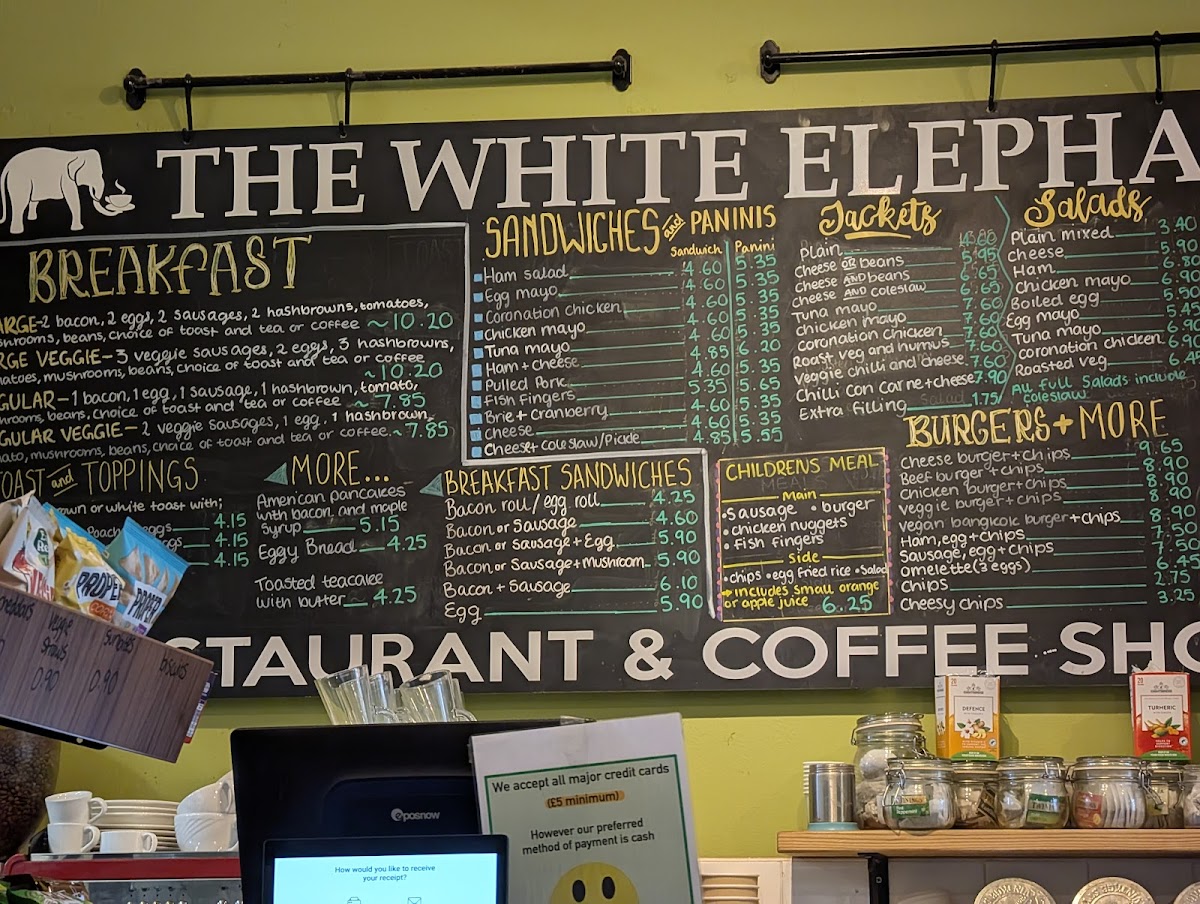 THE WHITE ELEPHA
BREAKFAST
ARGE-2 bacon, 2 eggs, 2 sausages, 2 hashbrowns, tomatoes,
shrooms, beans, choice of toast and tea or coffee ~10.20
RGE VEGGIE-3 veggie sausages, 2 eggs, 3 hashbrowns,
matoes, mushrooms, beans, choice of toast and tea or coffee
~10.20
GULAR-1 bacon, 1 egg, 1 sausage, 1 hashbrown, tomato,
shrooms, beans, choice of toast and tea or coffee ~7.85
GULAR VEGGIE- 2 veggie sausages, 1 egg, 1 hashbrown
mato, mushrooms, beans, choice of toast and tea or coffee.~7.85
TOAST and TOPPINGS
own or white toast with;
Poach eggs 4.15
4.15
4.15
MORE...
American pancakes
with bacon and maple
syrup 5.15
Eggy Bread 4.25
Toasted teacake
with butter 4.25
SANDWICHES and PANINIS
Sandwich Panini
Ham salad 4.60 5.35
Egg mayo 4.60 5.35
Coronation chicken 4.60 5.35
Chicken mayo 4.60 5.35
Tuna mayo 4.85 6.20
Ham + cheese 4.60 5.35
Pulled Pork 5.35 5.65
Fish Fingers 4.60 5.35
Brie + cranberry 4.60 5.35
Cheese 4.85 5.55
Cheese + coleslaw/pickle
BREAKFAST SANDWICHES
Bacon roll / egg roll 4.25
Bacon or Sausage 4.60
Bacon or Sausage + Egg 5.90
Bacon or Sausage + mushroom 5.90
Bacon + Sausage 6.10
Egg 5.90
Jackets
Plain
Cheese OR beans 5.95
Cheese AND beans 6.65
Cheese AND coleslaw 6.65
Tuna mayo 7.60
chicken mayo 7.60
coronation chicken 7.60
Roast veg and humus 7.60
Veggie chilli and cheese 7.60
Chilli con carne + cheese 7.90
Extra filling 1.75
Salads
Plain mixed 3.40
Cheese 5.90
Ham 6.80
Chicken mayo 6.90
Boiled egg 5.50
Egg mayo 5.45
Tuna mayo 6.90
coronation chicken 6.90
Roasted veg
All full Salads include
coleslaw
CHILDRENS MEAL
Main
•sausage •burger
•chicken nuggets
•fish fingers
side
•chips •egg fried rice •Salad
→includes small orange
or apple juice 6.25
BURGERS + MORE
Cheese burger + chips 9.65
Beef burger + chips 8.90
Chicken burger + chips 8.90
veggie burger + chips 8.90
vegan bangkok burger + chips 8.90
Ham, egg + chips 7.50
Sausage, egg + chips 7.50
omelette (3 eggs) 6.45
Chips 2.75
Cheesy chips 3.25
STAURANT & COFFEE SHO
PROPER
PROPER
veggie
straws
0.90
0.90
biscuits
eposnow
How would you like to receive
your receipt?
We accept all major credit cards
(£5 minimum)
However our preferred
method of payment is cash
DEFENCE
TURMERIC
TWININGS